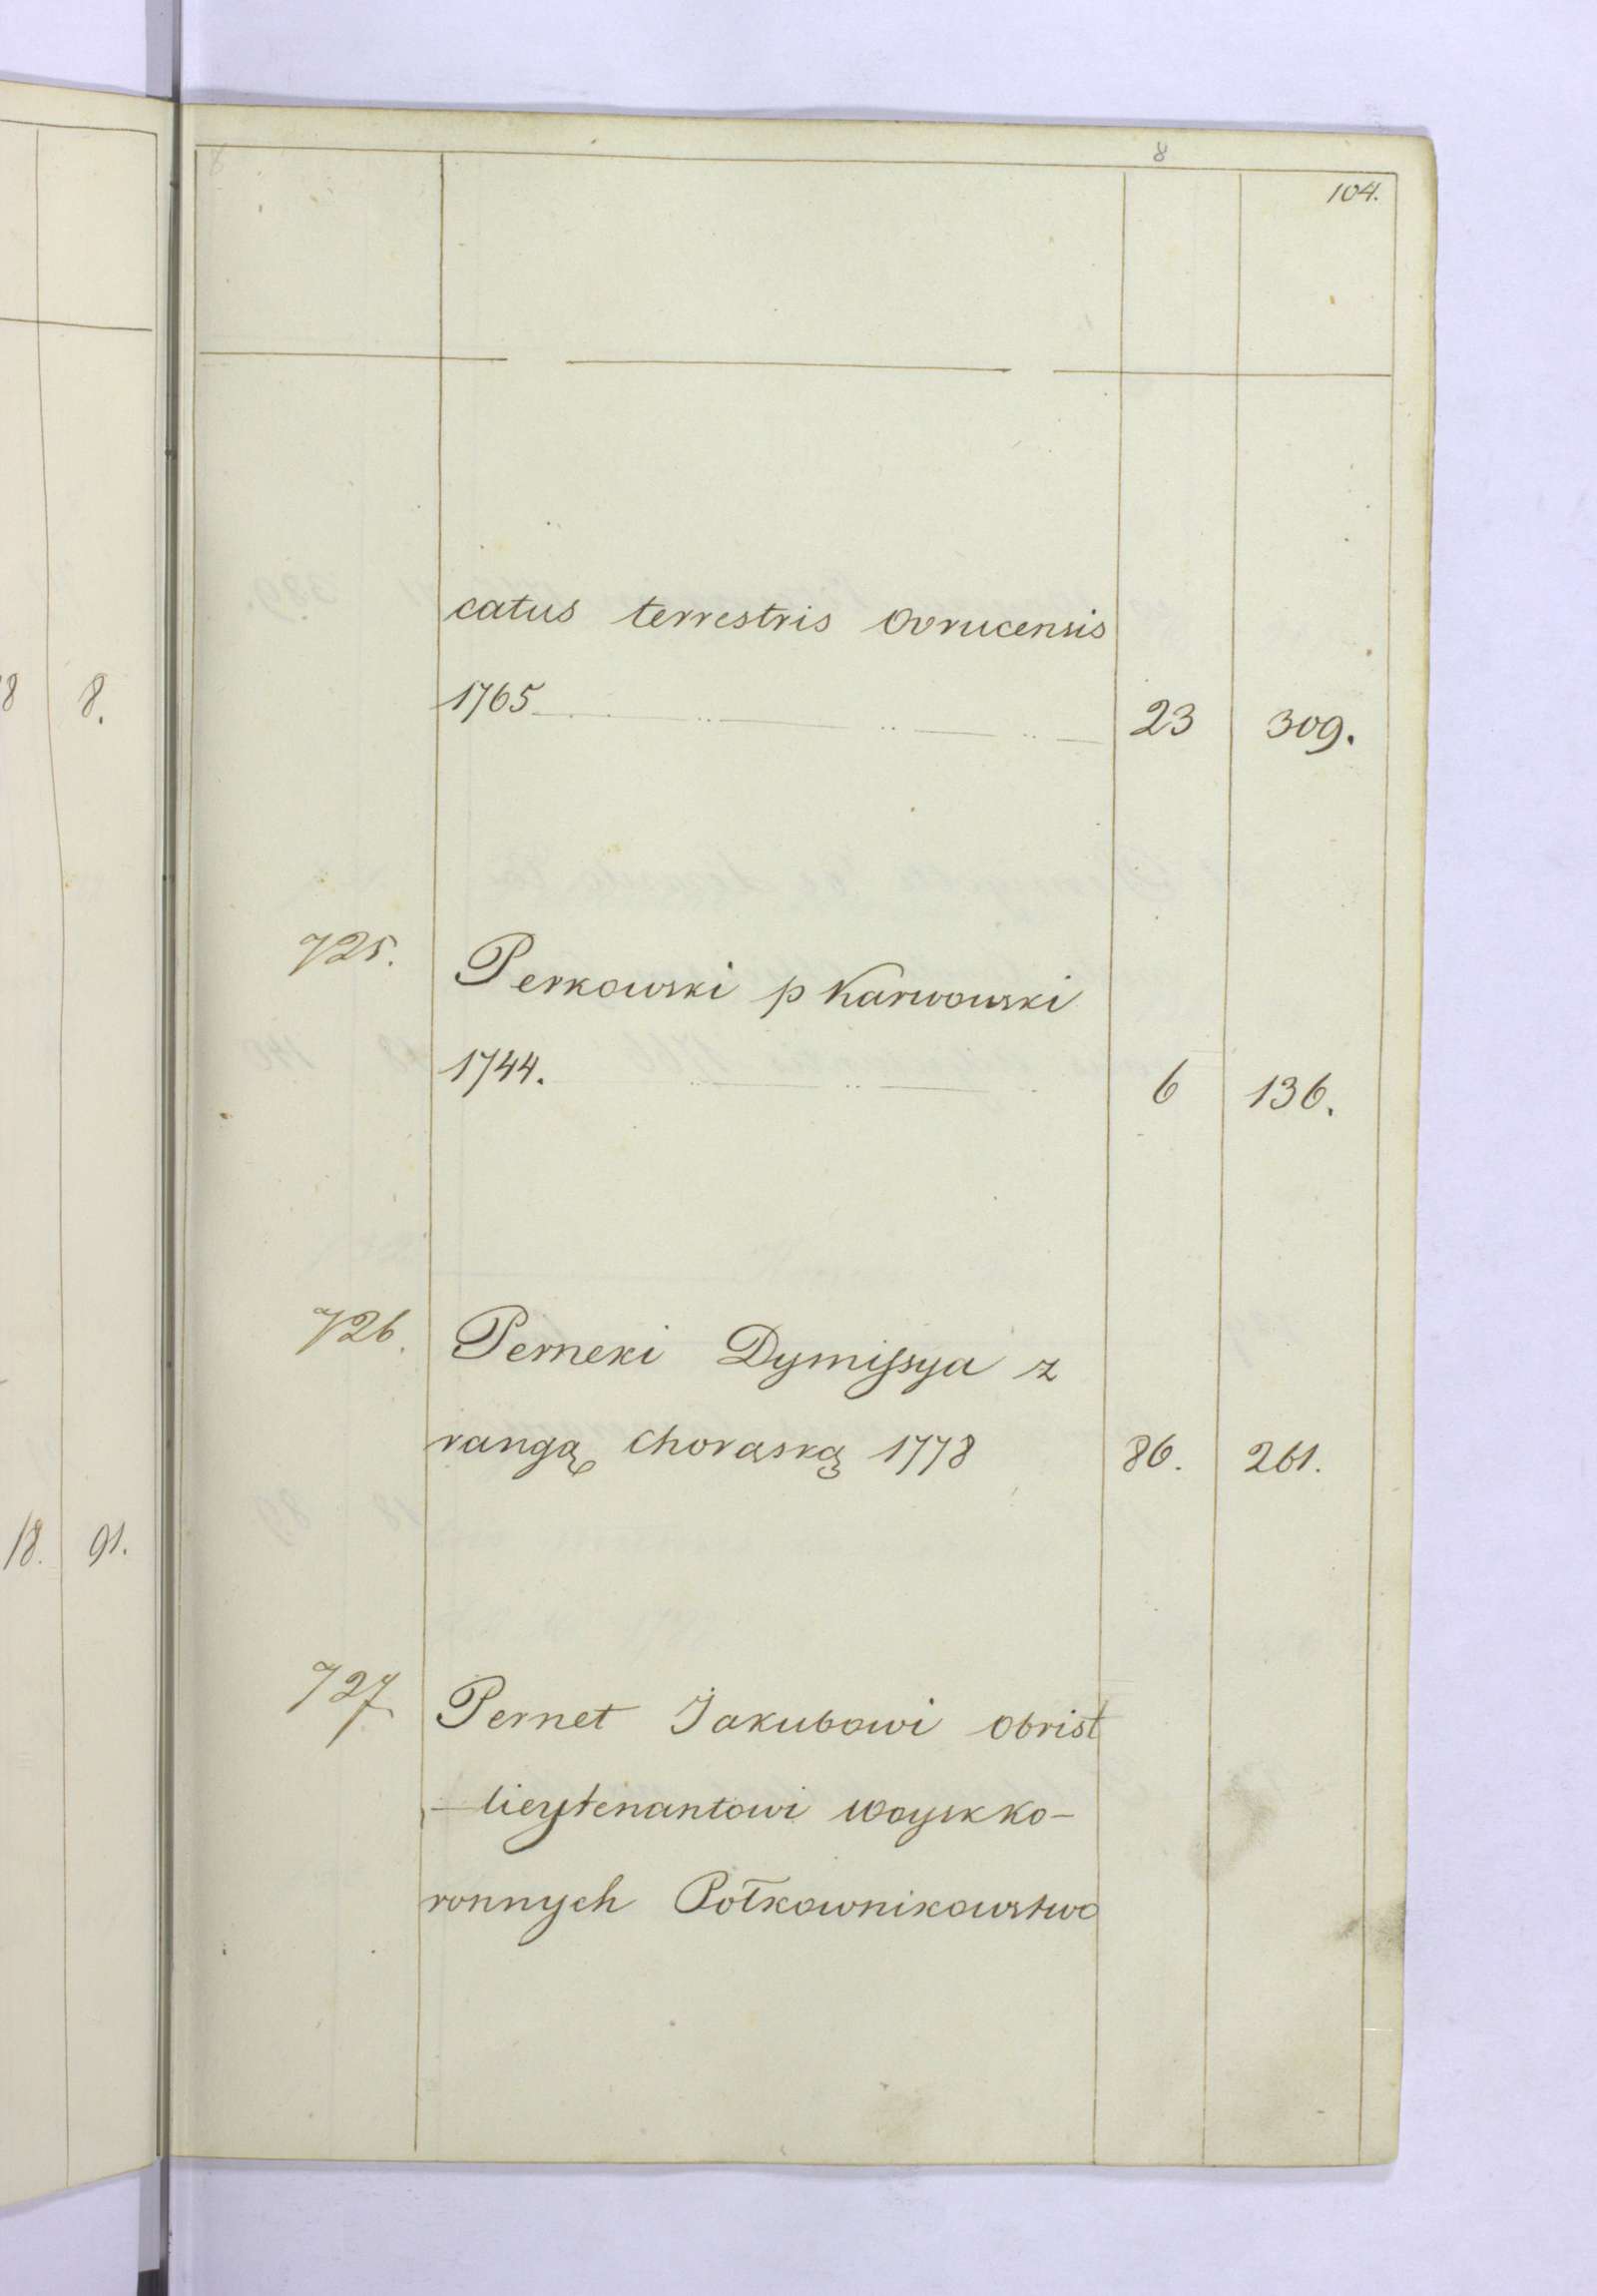 8
104.
catus terrestris Ovrucensis
1765 23 309.
725. Perkowski p Karwowski
1744. 6 136.
726. Perneki Dymissya z
rangą chorąską 1778 86. 261.
727 Pernet Jakubowi obrist
-lieytenantowi woysk ko-
ronnych Połkownikowstwo
8 8.
18. 91.